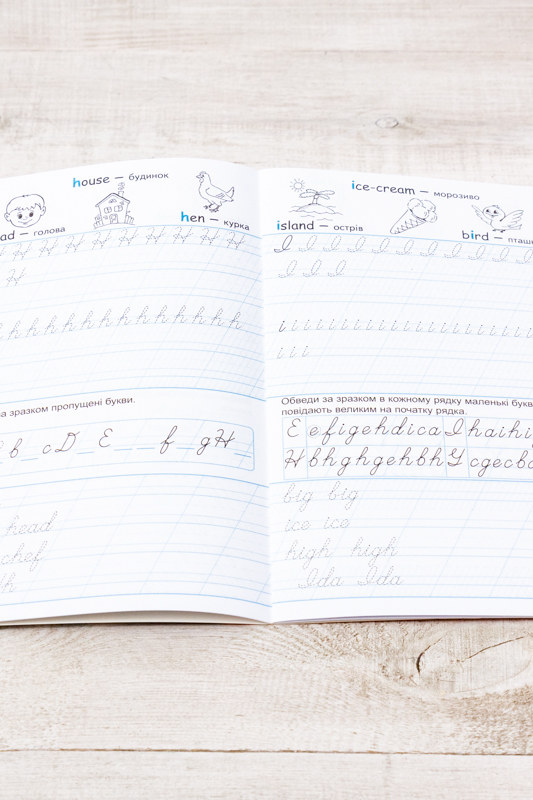 house — будинок
hen — курка
ad — голова
H H H H H H H H H
H
h h h h h h h h h h h h h h h
за зразком пропущені букви.
b _ c D _ E _ _ f _ g H _
head
chef
ice-cream — морозиво
island — острів
bird — пташ
I I I I I I I I I I
I I I
i i i i i i i i i i i i i i i i i i i i
i i i
Обведи за зразком в кожному рядку маленькі букв
повідають великим на початку рядка.
E e f i g e h d i c a I h a i h i
H b h g h g e h b h G c g e c b c
big big
ice ice
high high
Ida Ida